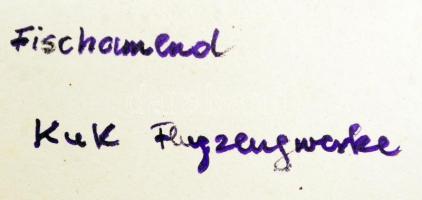 Fischamend
KuK Flugzeugwerke